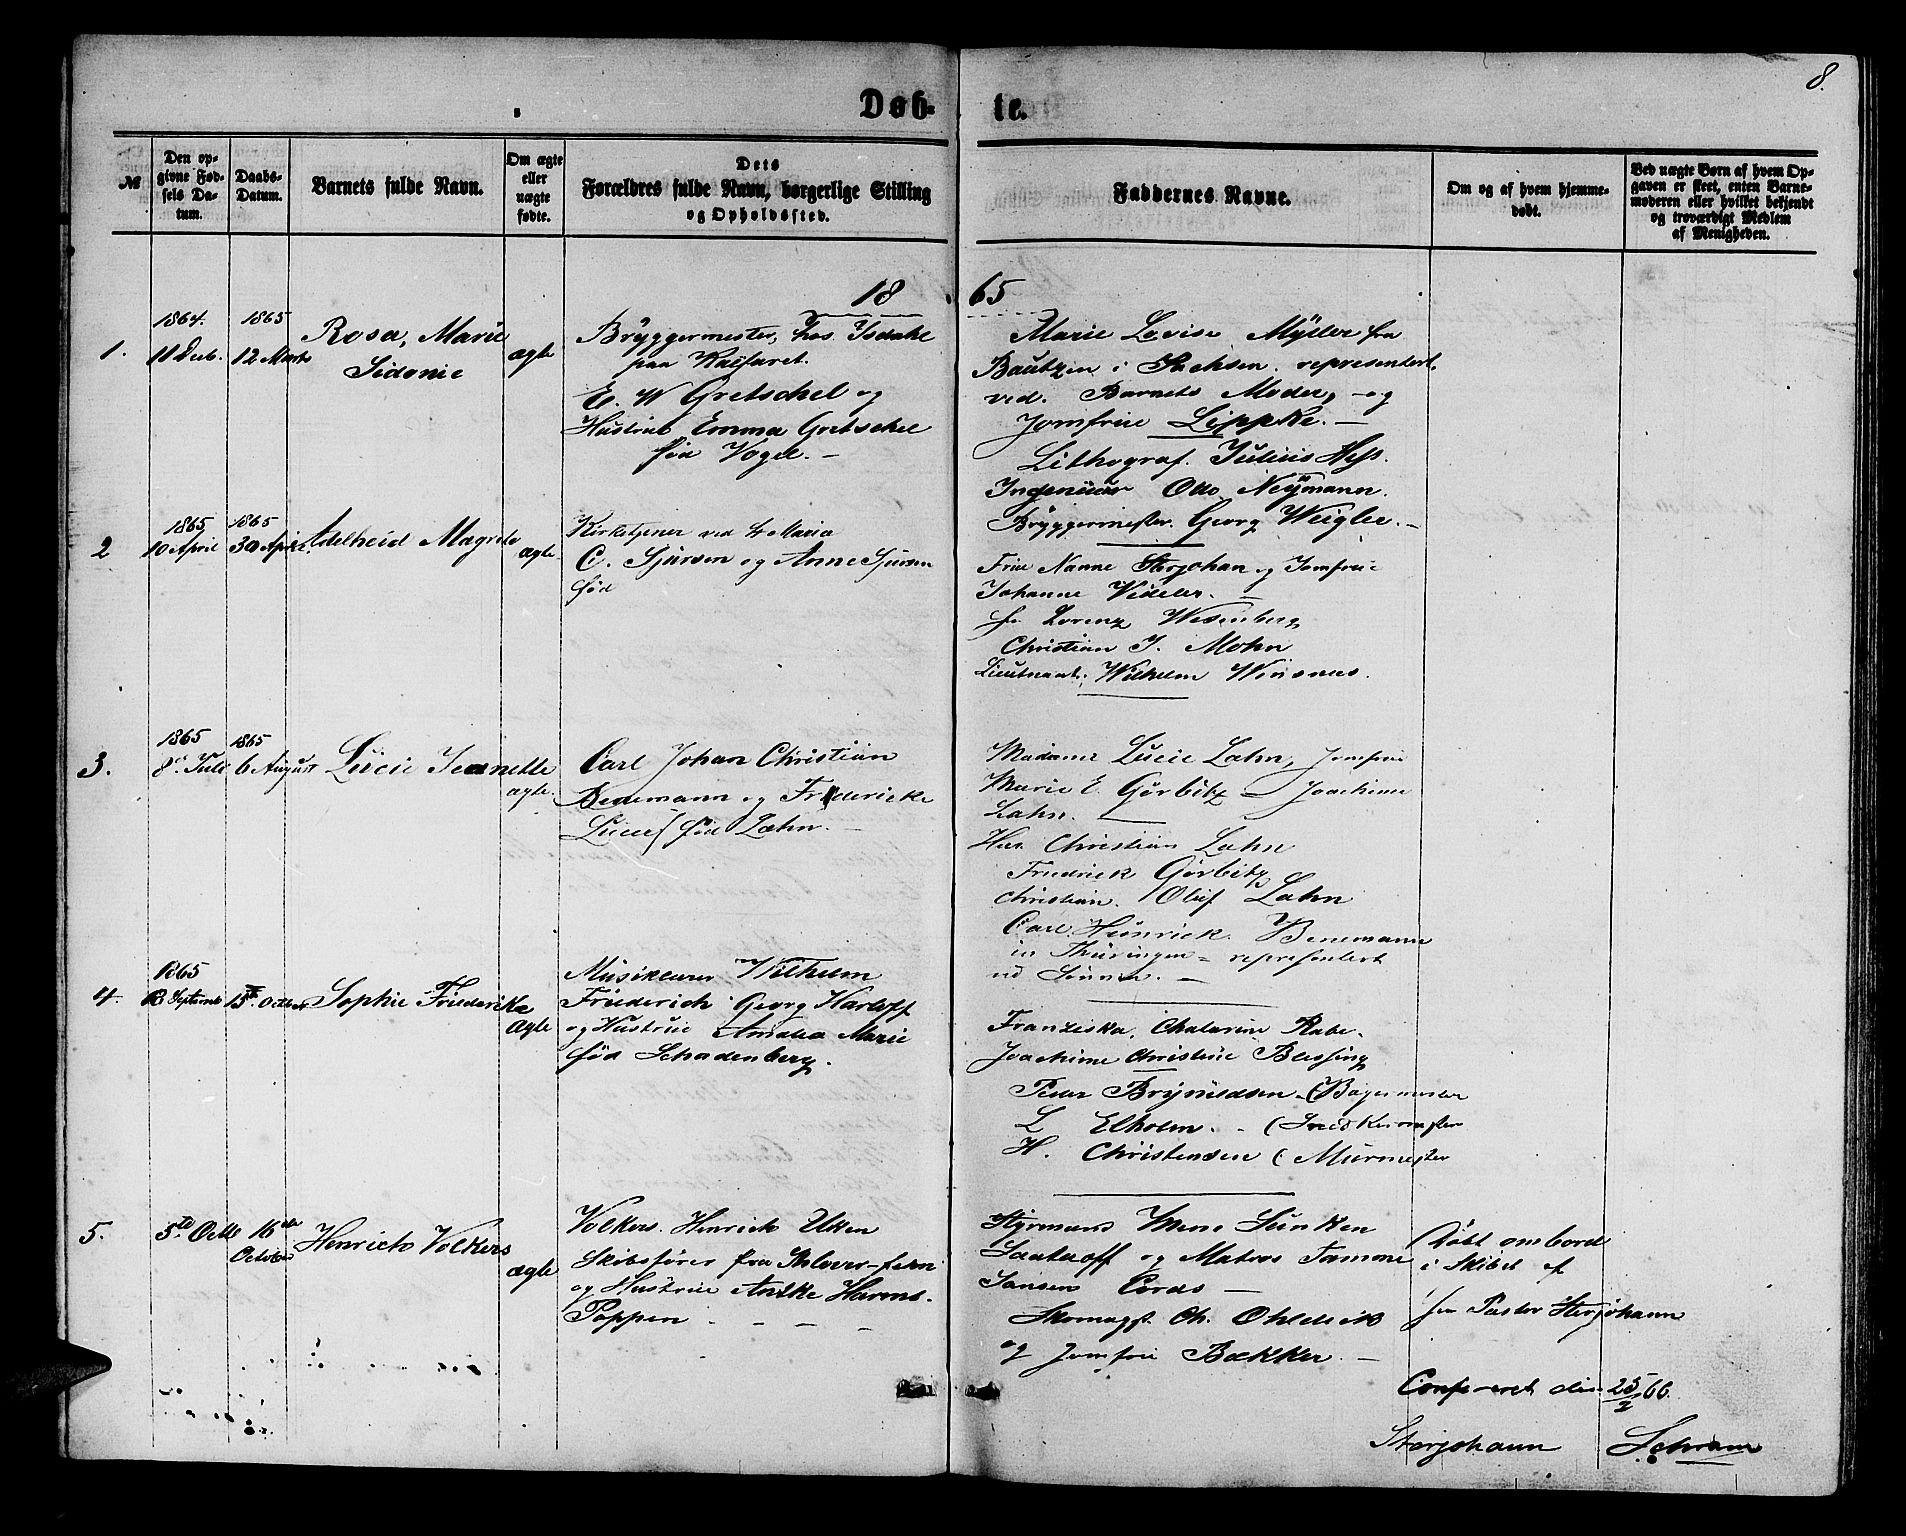 8.
Døb-te.
№
Den opgivne Fødsels Datum.
Daabs-Datum.
Barnets fulde Navn.
Om ægte eller uægte fødte.
Dets Forældres fulde Navn, borgerlige Stilling og Opholdssted.
Faddernes Navne.
Om og af hvem hjemmedøbt.
Ved uægte Børn af hvem Opgaven er skeet, enten Barnemoderen eller hvilket bekjendt og troværdigt Medlem af Menigheden.
18 65
1.
1864.
11 Decb.
1865
12 Marts
Rosa, Marie
Sidonie
ægte
Bryggermester, hos Isdahl
paa Kalfaret.
E. W Gretschel og
Hustrue Emma Gretschel
fød Vogel. —
Marie Lovise Myller fra
Bautzen i Sachsen. representert.
ved. Barnets Moder, - og
Jomfrue Lippke. —
Lithograf. Julius Hess.
Ingeniuer Otto Neymann.
Bryggermester. Georg Weigler. —
2
1865
10 April
1865
30 April
Adelheid Magrete
ægte.
Kirketjener ved St Maria
C. Sjursen og Anne Sjursen
fød
Frue Nanne Sterjohan og Jomfrue
Johanne Vedeler. —
Hr. Lorenz Wesenberg
Christian J. Mohn
Lieutnant; Wilhelm Wiisnes.
3.
1865
8de Juli
1865
6 August
Lucie Jeanette
ægte.
Carl Johan Christian
Benemann og Friderieke
Lucie fød Lahn. —
Madame Lucie Lahn, Jomfrue
Marie E Görbitz — Joachime
Lahn. —
Herr Christian Lahn
Friedrick Görbitz
Christian. Oluf Lahn
Carl. Heinrick. Benemann
in Thüringen = representert
ved Sønnen. —
4.
1865
13 Septembr
15de October
Sophie Friederika
Ægte
Musikeurer Wilhelm
Friederich Georg Harloff
og Hustrue Amalia Marie
fød Schadenberg.
Franziska, Chatarine Rabe.
Joachime Christine Blessing
Peder Brynildsen. (Bagermester
L Elholm. - (Snedkermester
H. Christensen (Murmester
5.
5te Octb
16de
October
Henrich Volkers
ægte
Volkers. Hinrich Uken
Skibsfører fra
og Hustrue Antke Harms.
Poppen
Styrmand Sünken
Santhoff og Matros Tamme
Jansen Cords —
Skomagst. Ch. Ohldieck
og Jomfrue Bækker. —
Døbt ombord
i Skibet af
Herr Pastor Sterjohann
Confereret den 25/2 66.
Sterjohann
Schram